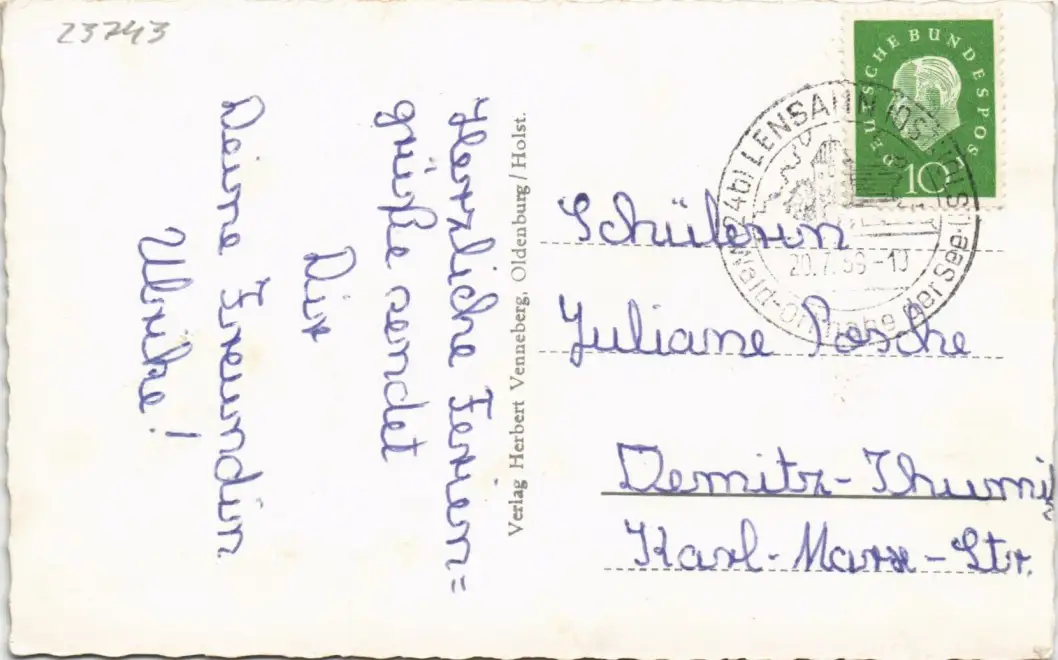 23743
Herzliche Ferien=
grüße sendet
Dir
Deine Freundin
Ulrike!
Verlag Herbert Venneberg, Oldenburg/Holst.
DEUTSCHE BUNDESPOST
10
(24b) LENSAHN (OSTHOLST)
20.7.59-10
der See
Schülerin
Juliane Posche
Demitz-Thumitz
Karl-Marx-Str.